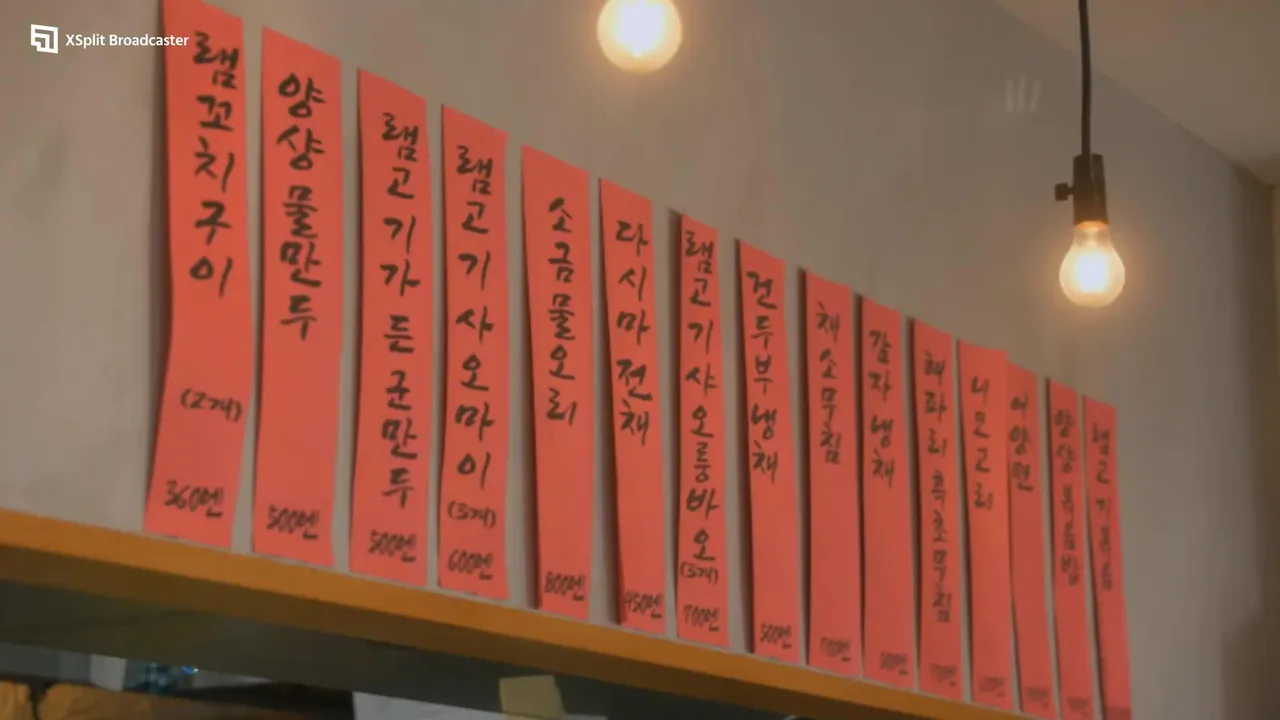 XSplit Broadcaster
램꼬치구이
(2개)
360엔
양샹물만두
500엔
램고기가든군만두
500엔
램고기사오마이
(3개)
600엔
소금물오리
800엔
다시마전채
450엔
램고기샤오룽바오
(3개)
700엔
건두부냉채
500엔
채소무침
감자냉채
500엔
해파리흑초무침
너모고리
어양면
양샹볶음밥
램고기볶음